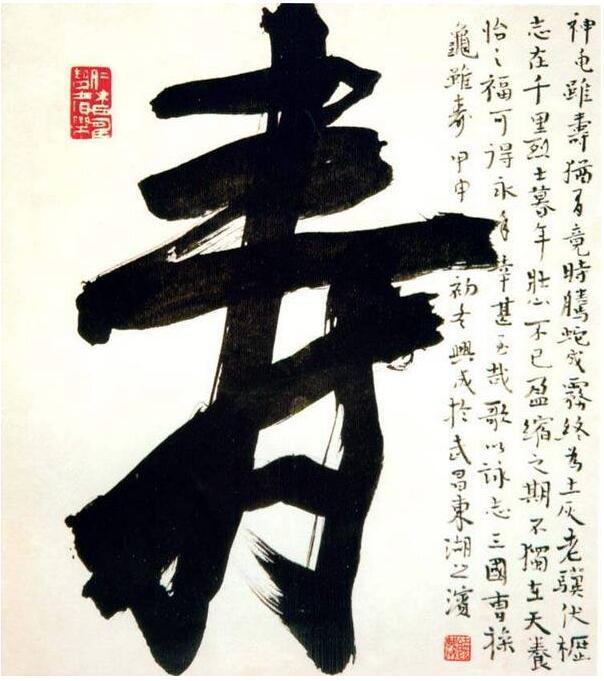 神龟雖壽猶有竟時騰蛇成霧終為土灰老驥伏櫪
志在千里烈士暮年壯心不已盈缩之期不獨在天養
怡之福可得永年幸甚至哉歌以詠志三國曹操
龜雖壽 甲申初冬興成於武昌東湖之濱
寿